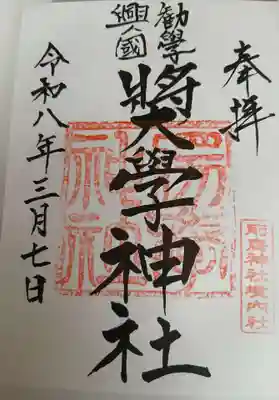 奉拝
勧學
興國
奬學神社
神社境内社
令和八年三月七日